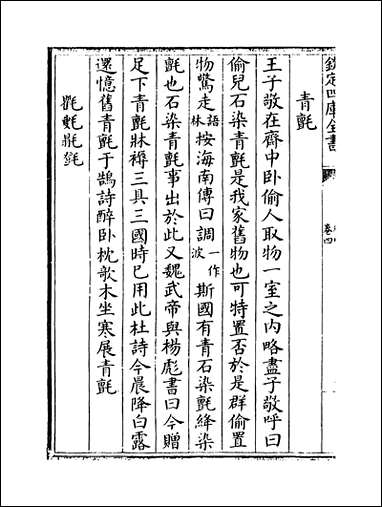 欽定四庫全書
卷四
青氈
王子敬在齋中卧偷人取物一室之内略盡子敬呼曰
偷兒石染青氈是我家舊物也可特置否於是群偷置
物驚走語林按海南傳曰調一作波斯國有青石染氈絳染
氈也石染青氈事出於此又魏武帝與楊彪書曰今贈
足下青氈牀褥三具三國時已用此杜詩今晨降白露
遥憶舊青氈于鵠詩醉卧枕歌木坐寒展青氈